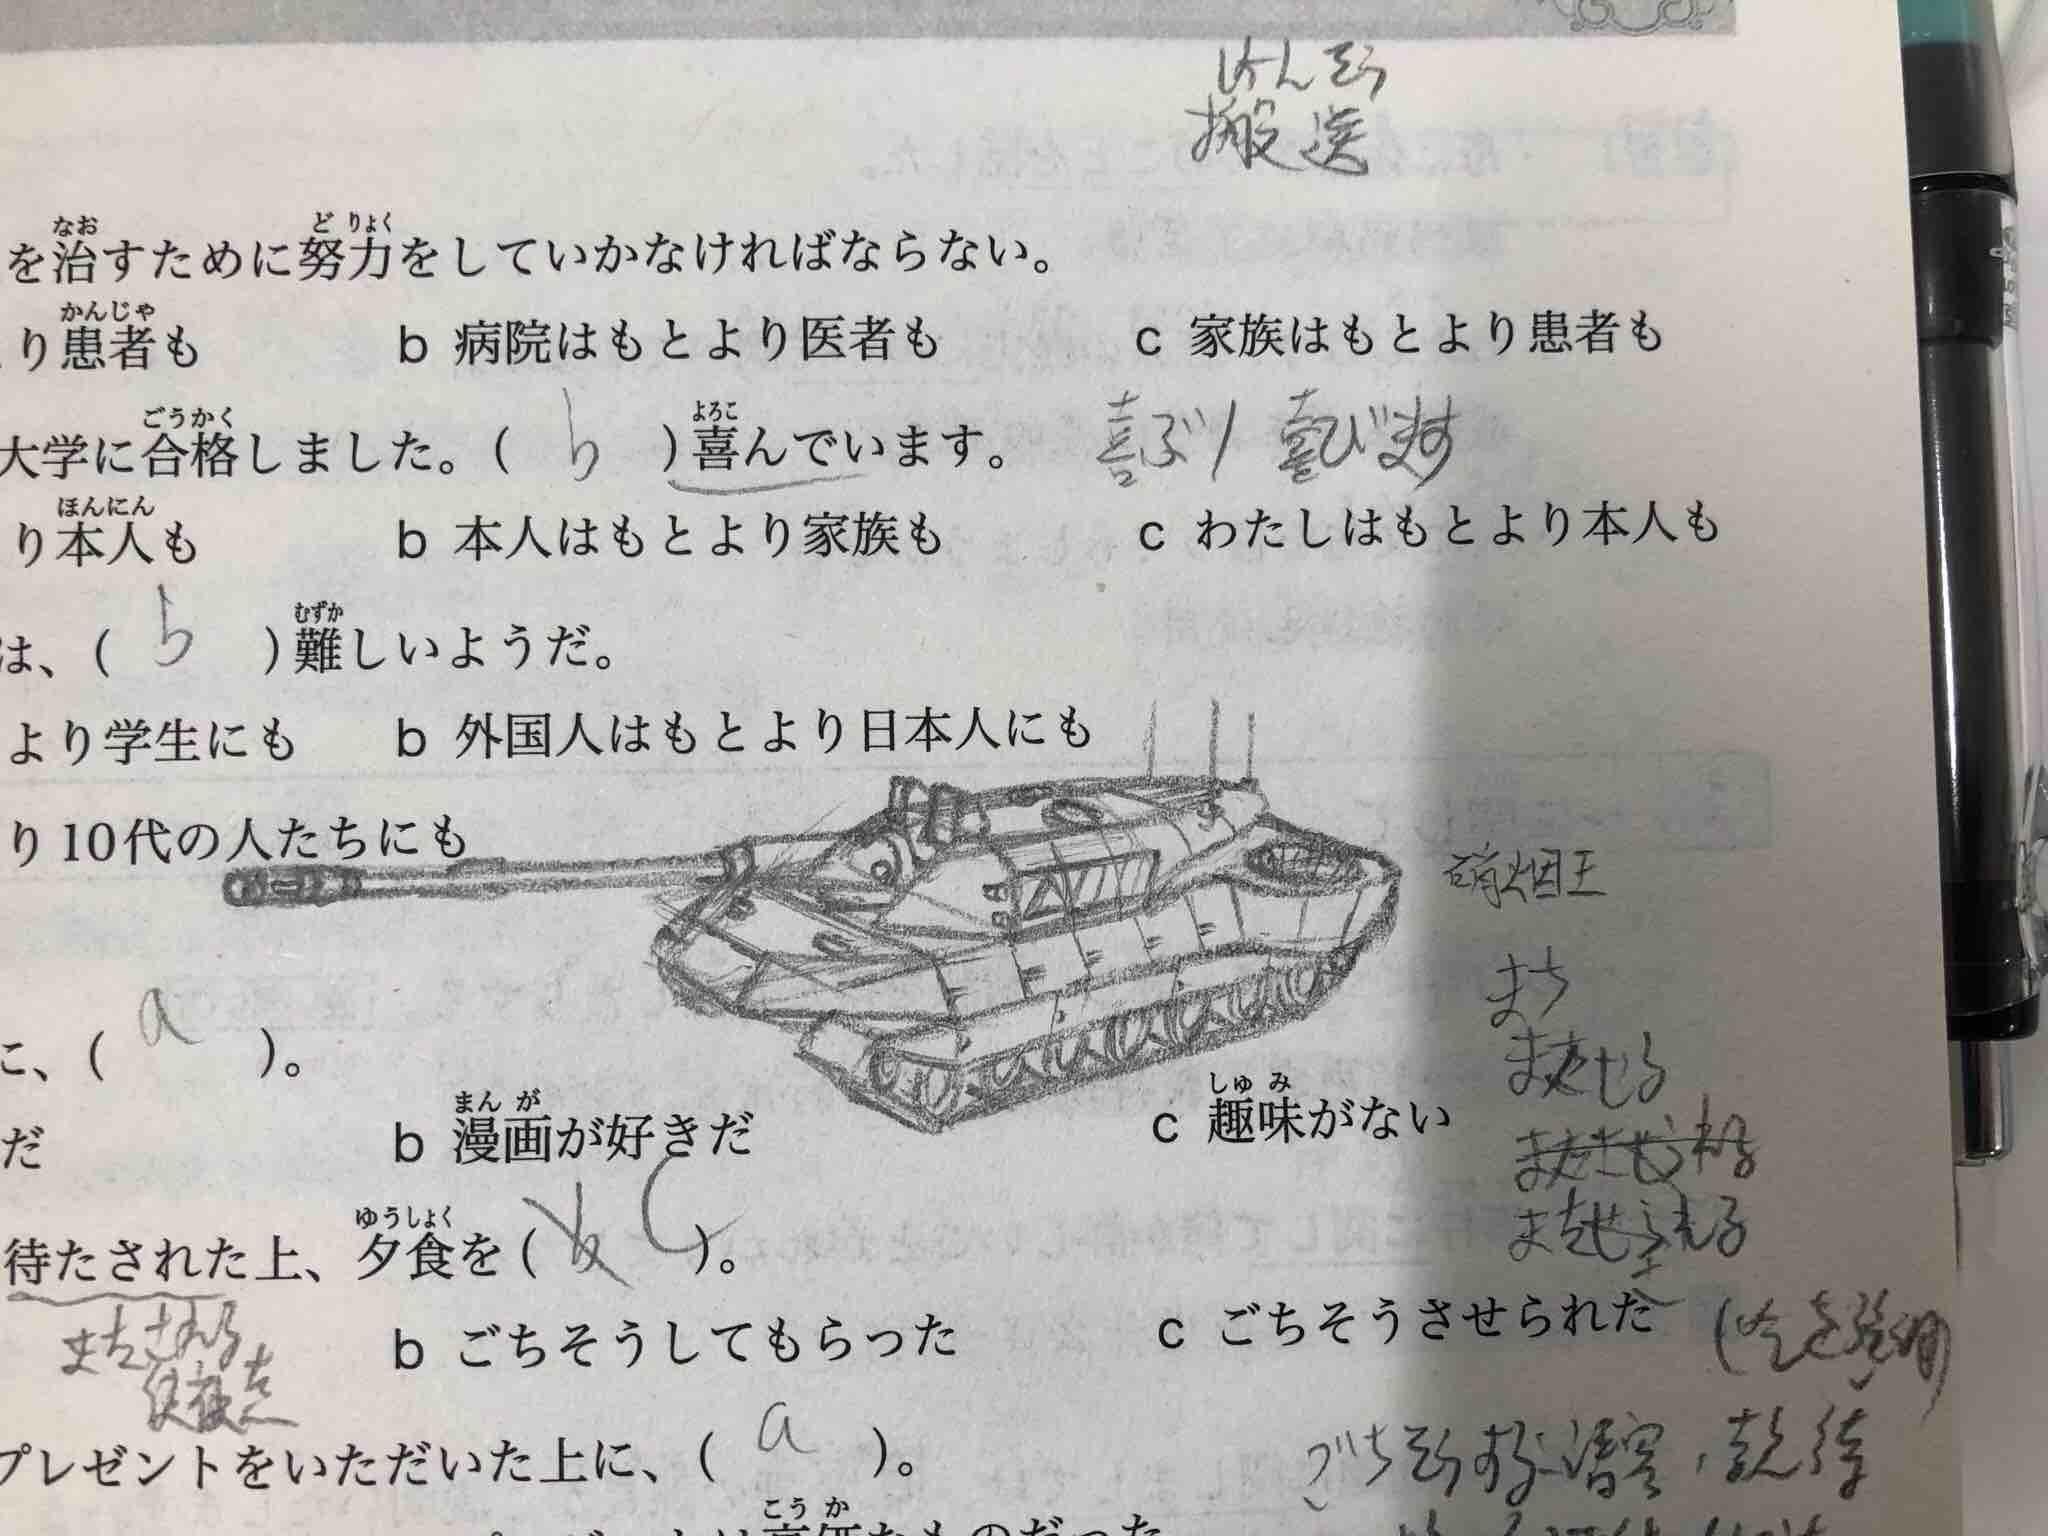 はんそう
搬送
を治すために努力をしていかなければならない。
なお
どりょく
り患者も b 病院はもとより医者も c 家族はもとより患者も
かんじゃ
大学に合格しました。( b )喜んでいます。 喜ぶ/喜びます
ごうかく
よろこ
り本人も b 本人はもとより家族も c わたしはもとより本人も
ほんにん
は、( b )難しいようだ。
むずか
より学生にも b 外国人はもとより日本人にも
り10代の人たちにも
硝烟王
まち
に、( a )。
またせる
だ b 漫画が好きだ c 趣味がない
まんが
しゅみ
待たされた上、夕食を( b c )。
ゆうしょく
またせられる
またされる
b ごちそうしてもらった c ごちそうさせられた
プレゼントをいただいた上に、( a )。
ごちそうする:请客,款待
こうか